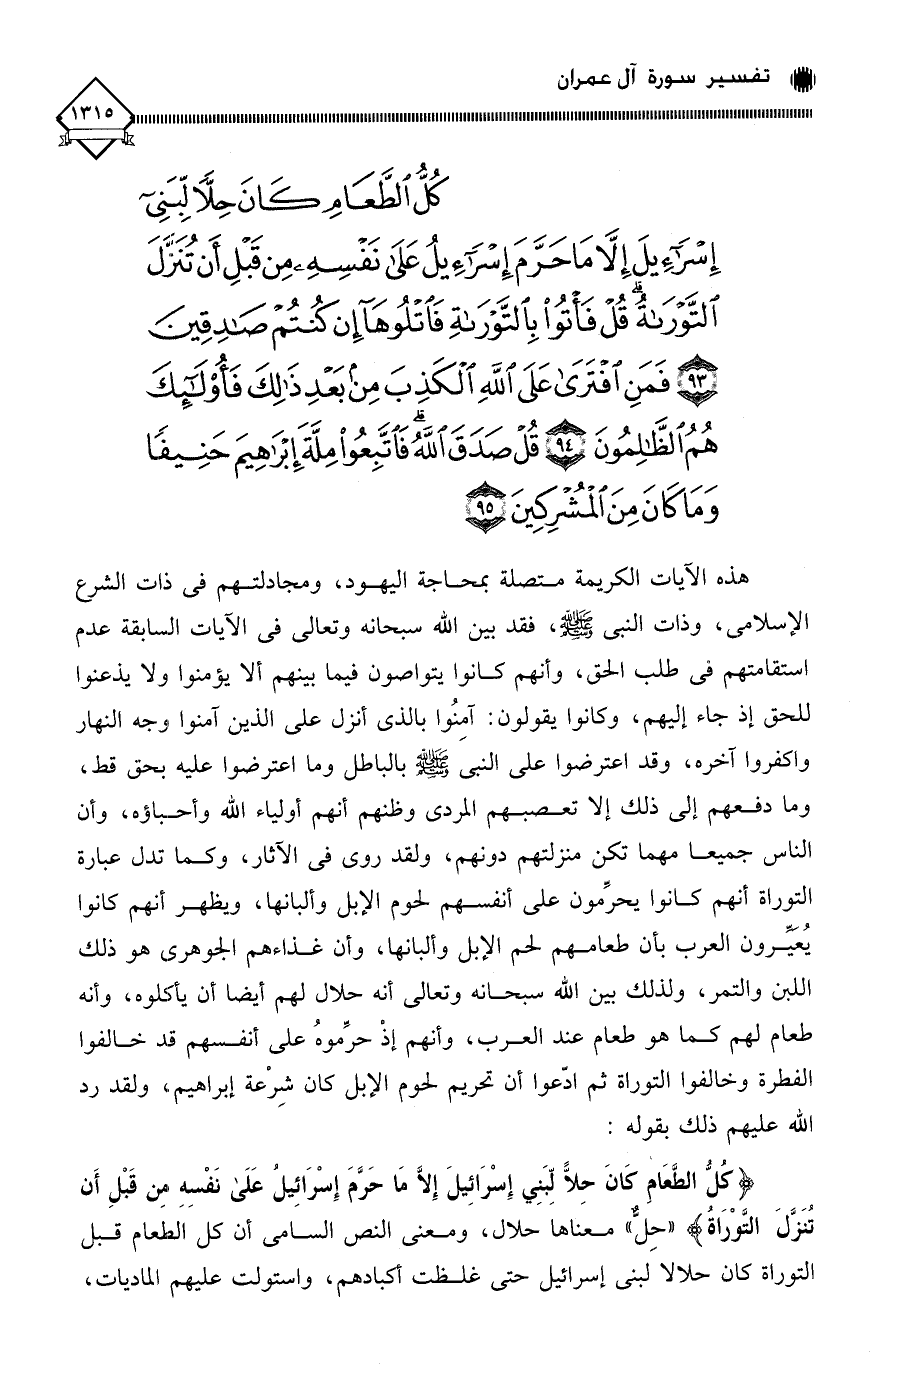 تفسير سورة آل عمران
١٣١٥
كُلُّ ٱلطَّعَامِ كَانَ حِلًّا لِّبَنِىٓ
إِسْرَٰٓءِيلَ إِلَّا مَا حَرَّمَ إِسْرَٰٓءِيلُ عَلَىٰ نَفْسِهِۦ مِن قَبْلِ أَن تُنَزَّلَ
ٱلتَّوْرَىٰةُ ۗ قُلْ فَأْتُوا۟ بِٱلتَّوْرَىٰةِ فَٱتْلُوهَآ إِن كُنتُمْ صَـٰدِقِينَ
٩٣ فَمَنِ ٱفْتَرَىٰ عَلَى ٱللَّهِ ٱلْكَذِبَ مِنۢ بَعْدِ ذَٰلِكَ فَأُو۟لَـٰٓئِكَ
هُمُ ٱلظَّـٰلِمُونَ ٩٤ قُلْ صَدَقَ ٱللَّهُ ۗ فَٱتَّبِعُوا۟ مِلَّةَ إِبْرَٰهِيمَ حَنِيفًا
وَمَا كَانَ مِنَ ٱلْمُشْرِكِينَ ٩٥
هذه الآيات الكريمة متصلة بمحاجة اليهود، ومجادلتهم فى ذات الشرع
الإسلامى، وذات النبى ﷺ، فقد بين الله سبحانه وتعالى فى الآيات السابقة عدم
استقامتهم فى طلب الحق، وأنهم كانوا يتواصون فيما بينهم ألا يؤمنوا ولا يذعنوا
للحق إذ جاء إليهم، وكانوا يقولون: آمِنُوا بالذى أنزل على الذين آمنوا وجه النهار
واكفروا آخره، وقد اعترضوا على النبى ﷺ بالباطل وما اعترضوا عليه بحق قط،
وما دفعهم إلى ذلك إلا تعصبهم المردى وظنهم أنهم أولياء الله وأحباؤه، وأن
الناس جميعا مهما تكن منزلتهم دونهم، ولقد روى فى الآثار، وكما تدل عبارة
التوراة أنهم كانوا يحرِّمون على أنفسهم لحوم الإبل وألبانها، ويظهر أنهم كانوا
يُعَيِّرون العرب بأن طعامهم لحم الإبل وألبانها، وأن غذاءهم الجوهرى هو ذلك
اللبن والتمر، ولذلك بين الله سبحانه وتعالى أنه حلال لهم أيضا أن يأكلوه، وأنه
طعام لهم كما هو طعام عند العرب، وأنهم إذْ حرِّموهُ على أنفسهم قد خالفوا
الفطرة وخالفوا التوراة ثم ادّعوا أن تحريم لحوم الإبل كان شِرْعة إبراهيم، ولقد رد
الله عليهم ذلك بقوله :
﴿كُلُّ الطَّعَامِ كَانَ حِلاًّ لِّبَنِي إِسْرَائِيلَ إِلاَّ مَا حَرَّمَ إِسْرَائِيلُ عَلَىٰ نَفْسِهِ مِن قَبْلِ أَن
تُنَزَّلَ التَّوْرَاةُ﴾ «حِلٌّ» معناها حلال، ومعنى النص السامى أن كل الطعام قبل
التوراة كان حلالا لبنى إسرائيل حتى غلظت أكبادهم، واستولت عليهم الماديات،